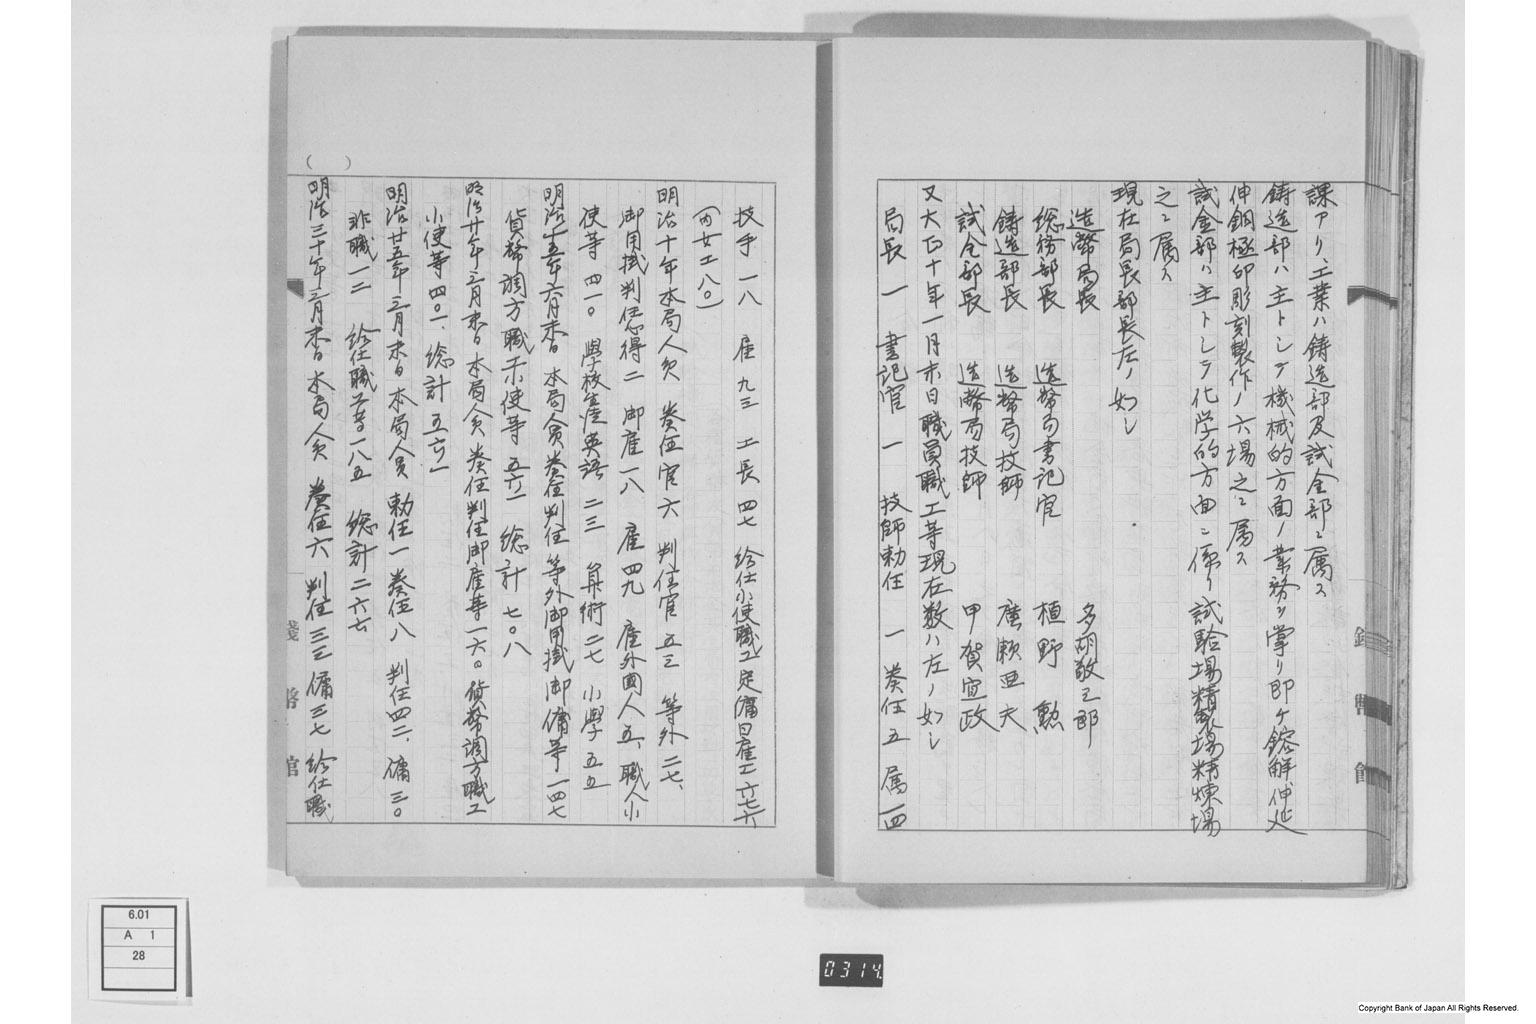 課アリ、工業ハ鋳造部及試金部ニ属ス
鋳造部ハ主トシテ機械的方面ノ業務ヲ掌リ即ケ鎔解伸延
伸銅極印彫刻製作ノ六場之ニ属ス
試金部ハ主トシテ化学的方面ニ係リ試験場精製場精煉場
之ニ属ス
現在局長部長左ノ如シ
造幣局長 多胡敬三郎
総務部長 造幣局書記官 植野勲
鋳造部長 造幣局技師 廣瀬亜夫
試金部長 造幣局技師 甲賀宜政
又大正十年一月末日職員職工等現在数ハ左ノ如シ
局長 一 書記官 一 技師勅任 一 奏任五 属一四
技手 一八 雇 九三 工長 四七 給仕小使職工定傭日雇工 六七六
(内女工八〇)
明治十年本局人員 奏任官六 判任官 五三 等外 二七、
御用掛判任心得二 御雇一八 雇四九 雇外国人五、職人小
使等 四一〇 學校生徒英語 二三 算術 二七 小學 五五
明治十五年六月末日 本局人員奏任判任 等外御用掛御傭等 一四七
貨幣調方職工小使等 五六一 総計 七〇八
明治廿年三月末日 本局人員 奏任判任御雇等一六〇 貨幣調方職工
小使等四〇一、総計 五六一
明治廿五年三月末日 本局人員 勅任一 奏任八 判任四二、傭三〇
非職一二 給仕職工等一八五 総計 二六七
明治三十年三月末日 本局人員 奏任六 判任三三 傭三七 給仕職
( )
銭幣館
6.01
A 1
28
0314.
Copyright Bank of Japan All Rights Reserved.